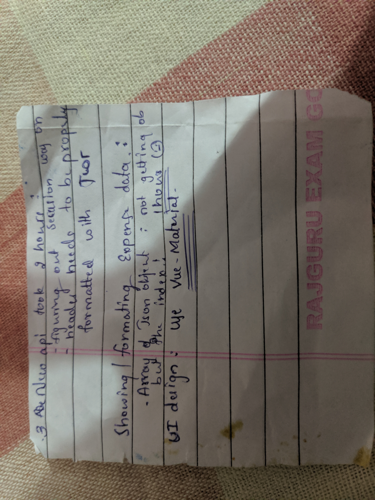 api took 2 hours :
- figuring out session way on
- header needs to be properly
formatted with
Showing / formating Expense data :
- Array of Json object : not getting ob
but the index : 1 hour (2)
UI design : Use Vue-Material.
RAJGURU EXAM GO